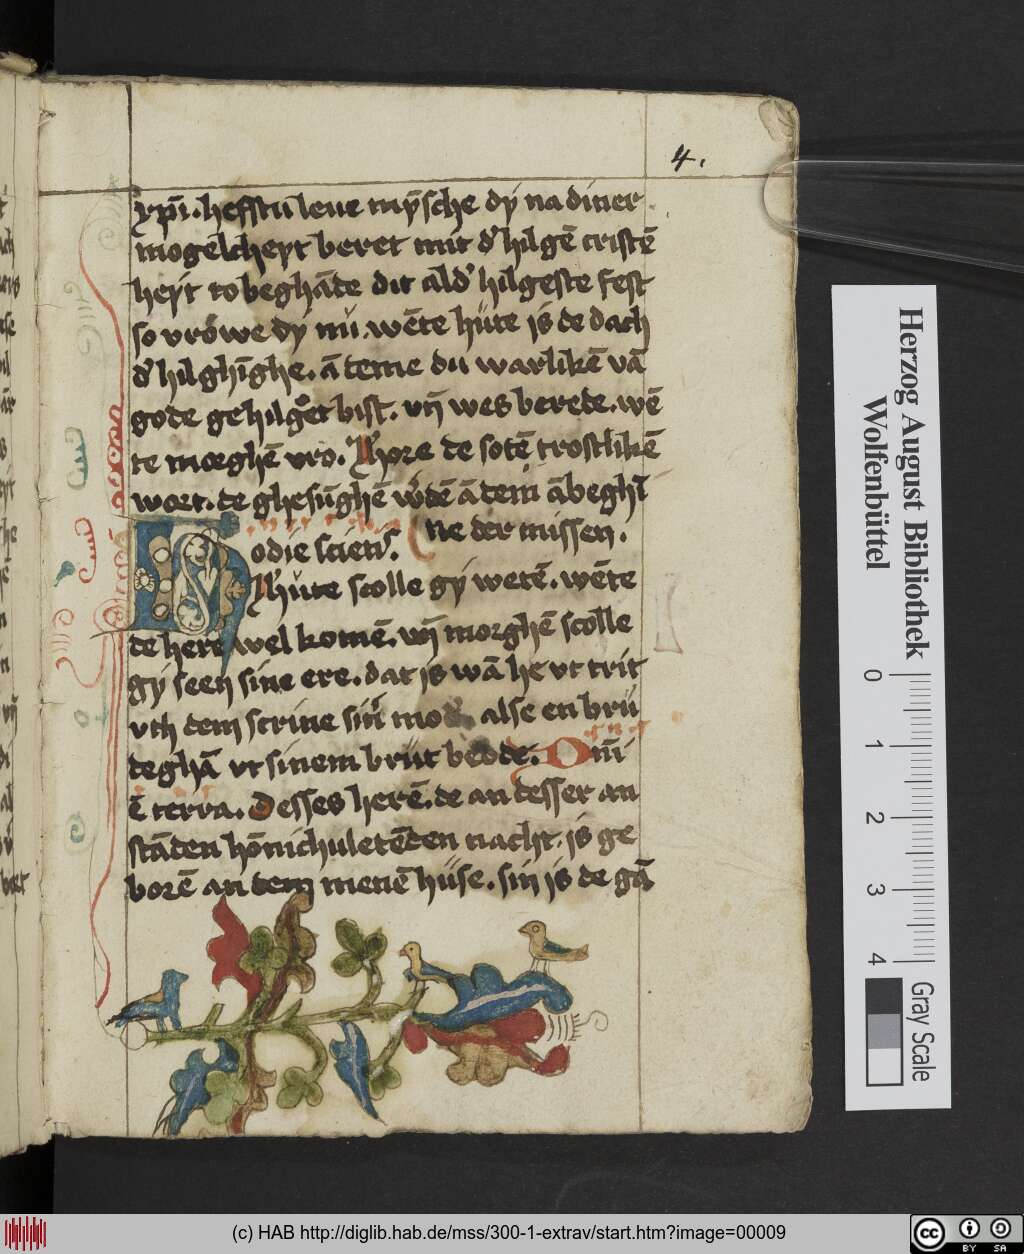 4.
xp̄i. hefstu leue mȳsche dy na diner
mogelcheyt beret mit d' hilgē cristē
heyt to beghāde dit ald' hilgeste fest
so vrowe dy nu. wēte hüte is de dach
d' hilghīghe. ā deme du warlikē vā
gode gehilget bist. vn̄ wes berede. wē
te mœghē vro. Thore de sotē trostlikē
wort. de ghesūghē w'dē ā dem ābeghī
ne der missen.
odie scietis.
hüte scolle gy wetē. wēte
de here wel komē. vn̄ morghē scolle
gy seen sine ere. dat is wā he vt trit
vth dem scrine sin' mod alse en brü
deghā vt sinem brüt bedde. Om̄i
ē terra. Desses herē. de an desser an
stāden hōnichuletēden nacht. is ge
borē an dem menē hüse. sin is de gā
Herzog August Bibliothek
Wolfenbüttel
0 1 2 3 4
Gray Scale
(c) HAB http://diglib.hab.de/mss/300-1-extrav/start.htm?image=00009
cc BY SA